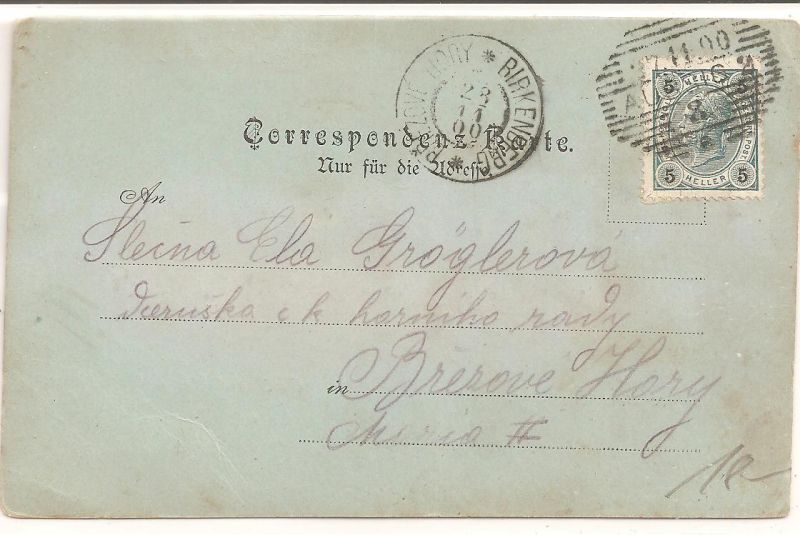 Correspondenz-Karte.
Nur für die Adresse
BŘEZOVÉ HORY * BIRKENBERG *
23
11
00
11 00
HELLER
5 5
5 HELLER 5
An
Slečna Ela Gröglerová
dceruška c k horního rady
in Březové Hory